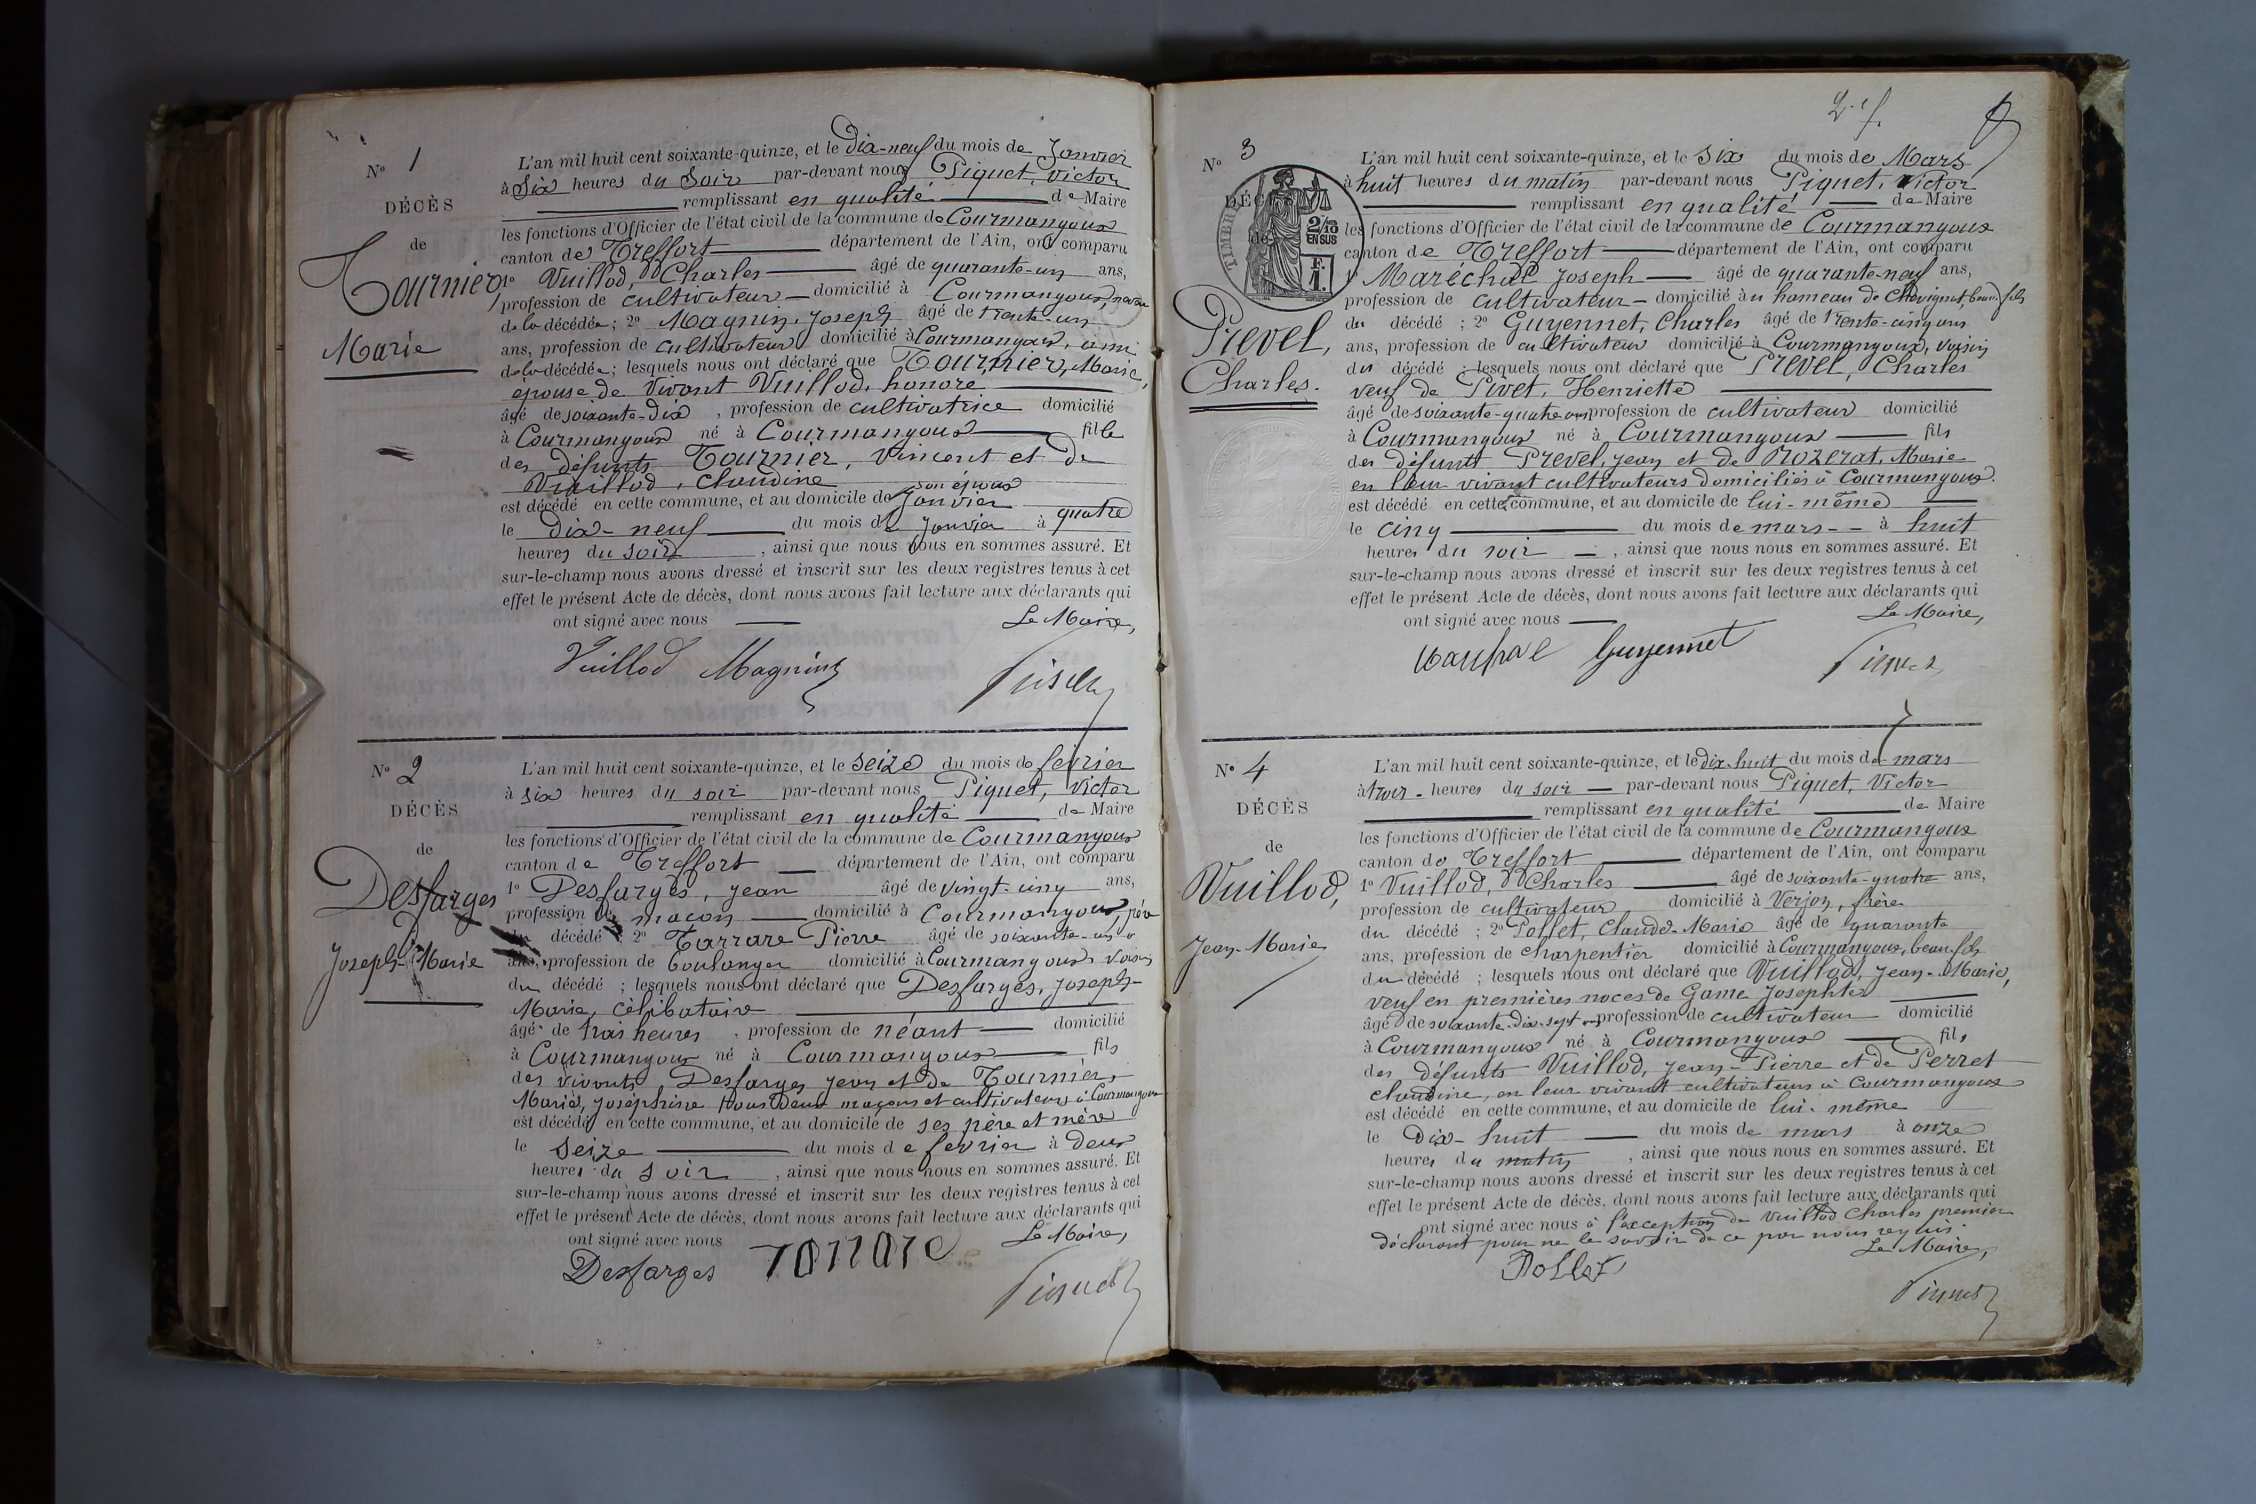 N° 1
DÉCÈS
de
Tournier,
Marie
L'an mil huit cent soixante-quinze, et le Dix-neuf du mois de Janvier
à Six heures du Soir par-devant nous Piquet, Victor
remplissant en qualité de Maire
les fonctions d'Officier de l'état civil de la commune de Courmangoux
canton de Treffort département de l'Ain, ont comparu
1° Vuillod, Charles âgé de quarante-un ans,
profession de cultivateur domicilié à Courmangoux,
de la décédée; 2° Magnin, Joseph âgé de trente-un
ans, profession de cultivateur domicilié à Courmangoux, ami
de la décédée; lesquels nous ont déclaré que Tournier, Marie,
épouse de vivant Vuillod, honoré
âgé de soixante-dix, profession de cultivatrice domicilié
à Courmangoux né à Courmangoux fille
des défunts Tournier, Vincent et de
Vuillod, Claudine
son époux
est décédé en cette commune, et au domicile de Janvier
le dix-neuf du mois de Janvier à quatre
heures du soir, ainsi que nous nous en sommes assuré. Et
sur-le-champ nous avons dressé et inscrit sur les deux registres tenus à cet
effet le présent Acte de décès, dont nous avons fait lecture aux déclarants qui
ont signé avec nous Le Maire,
Vuillod Magnin
N° 2
DÉCÈS
de
Desfarges
Joseph-Marie
L'an mil huit cent soixante-quinze, et le seize du mois de février
à six heures du soir par-devant nous Piquet, Victor
remplissant en qualité de Maire
les fonctions d'Officier de l'état civil de la commune de Courmangoux
canton de Treffort département de l'Ain, ont comparu
1° Desfarges, Jean âgé de vingt-cinq ans,
profession de maçon domicilié à Courmangoux, père
du décédé; 2° Tarrare Pierre âgé de soixante-un
ans, profession de boulanger domicilié à Courmangoux voisin
du décédé; lesquels nous ont déclaré que Desfarges, Joseph-
Marie, célibataire
âgé de trois heures, profession de néant domicilié
à Courmangoux né à Courmangoux fils
des vivants Desfarges Jean et de Tournier,
Marie, Joséphine tous deux maçons et cultivateurs à Courmangoux
est décédé en cette commune, et au domicile de ses père et mère
le seize du mois de fevrier à deux
heures du soir, ainsi que nous nous en sommes assuré. Et
sur-le-champ nous avons dressé et inscrit sur les deux registres tenus à cet
effet le présent Acte de décès, dont nous avons fait lecture aux déclarants qui
ont signé avec nous Le Maire,
Desfarges Tarrare
N° 3
DÉCÈS
de
TIMBRE
2/10
EN SUS
F.
1.
Prevel,
Charles.
L'an mil huit cent soixante-quinze, et le Six du mois de Mars
à huit heures du matin par-devant nous Piquet, Victor
remplissant en qualité de Maire
les fonctions d'Officier de l'état civil de la commune de Courmangoux
canton de Treffort département de l'Ain, ont comparu
Maréchal Joseph âgé de quarante-neuf ans,
profession de cultivateur domicilié au hameau de Chevignat, beau-fils
du décédé; 2° Guyennet, Charles âgé de trente-cinq ans
ans, profession de cultivateur domicilié à Courmangoux, voisin
du décédé; lesquels nous ont déclaré que Prevel, Charles
veuf de Pivet, Henriette
âgé de soixante-quatre ans profession de cultivateur domicilié
à Courmangoux né à Courmangoux fils
des défunts Prevel, Jean et de Rozerat, Marie
en leur vivant cultivateurs domiciliés à Courmangoux.
est décédé en cette commune, et au domicile de lui-même
le cinq du mois de mars à huit
heures du soir, ainsi que nous nous en sommes assuré. Et
sur-le-champ nous avons dressé et inscrit sur les deux registres tenus à cet
effet le présent Acte de décès, dont nous avons fait lecture aux déclarants qui
ont signé avec nous Le Maire,
Guyennet
N° 4
DÉCÈS
de
Vuillod,
Jean-Marie
L'an mil huit cent soixante-quinze, et le dix-huit du mois de mars
à trois heures du soir par-devant nous Piquet, Victor
remplissant en qualité de Maire
les fonctions d'Officier de l'état civil de la commune de Courmangoux
canton de Treffort département de l'Ain, ont comparu
1° Vuillod, Charles âgé de soixante-quatre ans,
profession de cultivateur domicilié à Verjon, frère
du décédé; 2° Pollet, Claude-Marie âgé de quarante
ans, profession de charpentier domicilié à Courmangoux, beau-fils
du décédé; lesquels nous ont déclaré que Vuillod, Jean-Marie,
veuf en premières noces de Game Josephte
âgé de soixante-dix-sept ans profession de cultivateur domicilié
à Courmangoux né à Courmangoux fils
des défunts Vuillod, Jean-Pierre et de Perret
Claudine, en leur vivant cultivateurs à Courmangoux
est décédé en cette commune, et au domicile de lui-même
le Dix-huit du mois de mars à onze
heures du matin, ainsi que nous nous en sommes assuré. Et
sur-le-champ nous avons dressé et inscrit sur les deux registres tenus à cet
effet le présent Acte de décès, dont nous avons fait lecture aux déclarants qui
ont signé avec nous à l'exception de Vuillod Charles premier
déclarant pour ne le savoir de ce par nous requis.
Le Maire,
Pollet